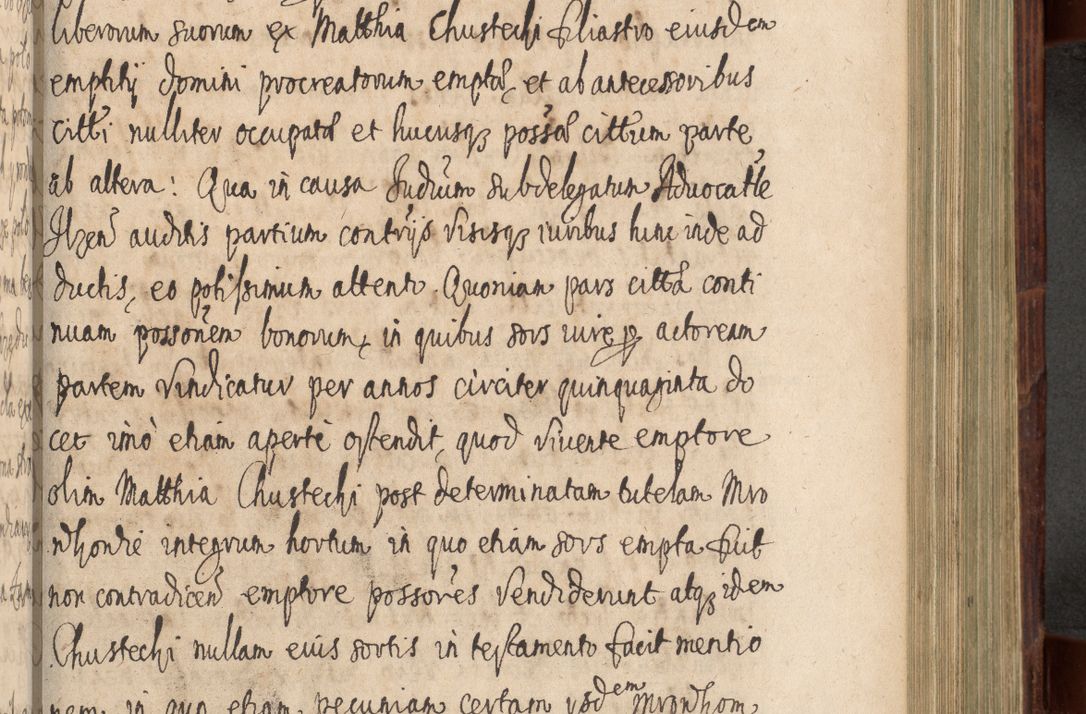 liberorum suorum ex Matthia Chustechi filiastro eiusdem
emptitij domini procreatorum empta, et ab antecessoribus
citti nulliter occupata et hucusq possa cittum parte
ab altera: Qua in causa Judium subdelegatum Advocatle
Ilzen auditis partium contrijs visisq iuribus hinc inde ad
ductis, eo potissimum attento. Quoniam pars citta conti
nuam possonem bonorum, in quibus sors iure p actoream
partem vindicatur per annos circiter quinquaginta do
cet imò etiam apertè ostendit, quod vivente emptore
olim Matthia Chustechi post determinatam tutelam Mro
integrum hortum in quo etiam sors empta fuit
non contradicen emptore possores vendiderunt atq idem
Chustechi nullam eius sortis in testamento facit mentio
nem, in quo etiam pecuniam certam